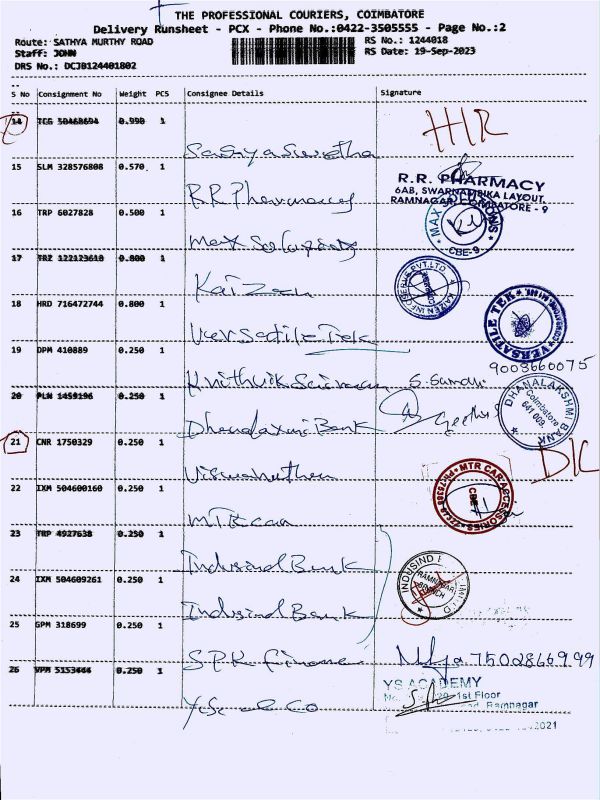 THE PROFESSIONAL COURIERS, COIMBATORE
Delivery Runsheet - PCX - Phone No.:0422-3505555 - Page No.:2
Route: SATHYA MURTHY ROAD RS No.: 1244018
Staff: JOHN RS Date: 19-Sep-2023
DRS No.: DCJB124401802
S No Consignment No Weight PCS Consignee Details Signature
14 TCG 50468694 0.990 1 HR
15 SLM 328576808 0.570 1
R.R. PHARMACY
6AB, SWARNAMBIKA LAYOUT,
RAMNAGAR, COIMBATORE - 9
R.R Pharmacy
16 TRP 6027828 0.500 1
MAX SOLUTIONS
CBE-9
17 TRZ 122123618 0.800 1
KAIZEN INFOSERVE PVT.LTD
Kaizen
18 HRD 716472744 0.800 1
VERSATILE TEK
Versatile Tek
19 DPM 410889 0.250 1
9003660075
20 PLN 1459196 0.250 1
DHANALAKSHMI BANK
Coimbatore
641 009
Dhanalaxmi Bank
21 CNR 1750329 0.250 1
Viswanathan
22 IXM 504600160 0.250 1
MTR CAR ACCESSORIES
CBE
MTR Car
23 TRP 4927638 0.250 1
Indusind Bank
INDUSIND
RAMNAGAR
BRANCH
24 IXM 504609261 0.250 1
Indusind Bank
25 GPM 318699 0.250 1
SPK Finance 7502866999
26 VPM 5153444 0.250 1
YS ACADEMY
1st Floor
Ramnagar